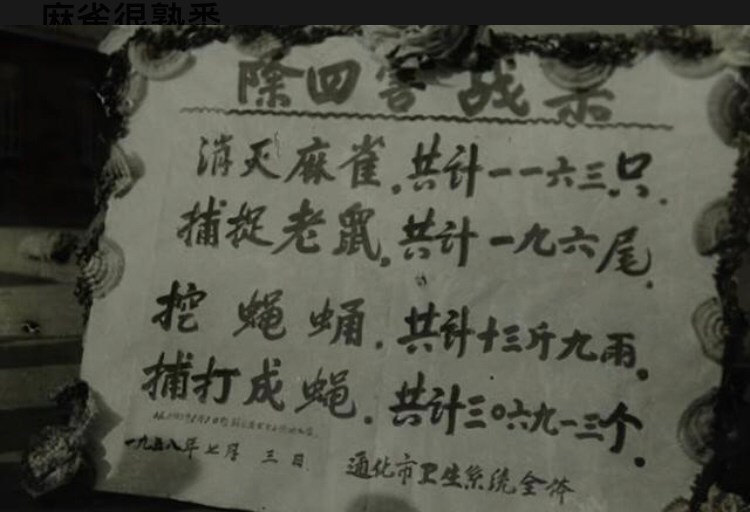 麻雀很熟悉
除四害 战示
消灭麻雀,共计一一六三只.
捕捉老鼠,共计一九六尾.
挖蝇蛹.共计十三斤九雨.
捕打成蝇.共计三〇六九一三个.
一九五八年七月三日.
通化市卫生系统全体